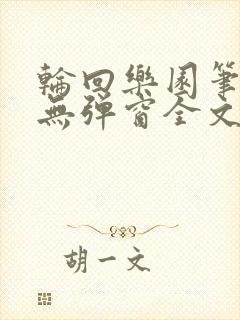 輪回樂園筆
無彈窗全文
胡一文